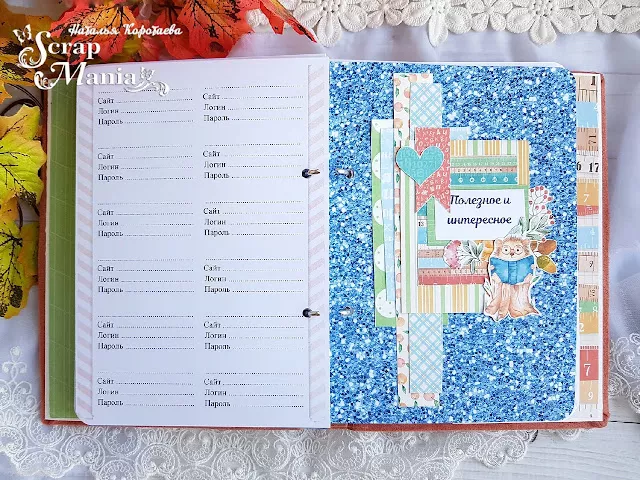 Наталья Коротаева
Scrap
Mania
Сайт
Логин
Пароль
Сайт
Логин
Пароль
Сайт
Логин
Пароль
Сайт
Логин
Пароль
Сайт
Логин
Пароль
Сайт
Логин
Пароль
Сайт
Логин
Пароль
Сайт
Логин
Пароль
Сайт
Логин
Пароль
Сайт
Логин
Пароль
Сайт
Логин
Пароль
Сайт
Логин
Пароль
Полезное и
интересное
17
7
7